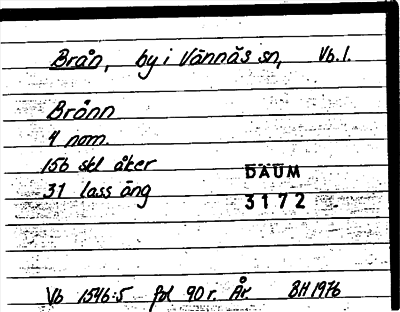 Brån, by i Vännäs sn, Vb. l.
Brånn
4 nom.
156 skl åker
31 lass äng
DAUM
3172
Vb 1546:5 fol 90 r. År BH 1976